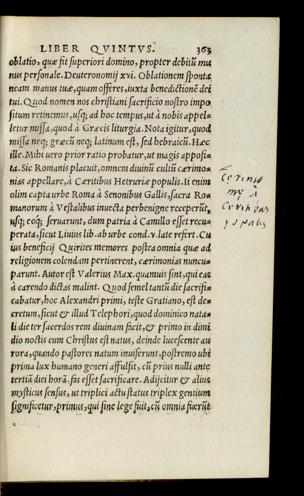 LIBER QVINTVS. 363
oblatio, quæ fit superiori domino, propter debitũ mu
nus personale. Deuteronomij xvi. Oblationem spontа
neam manus tuæ, quam offeres, iuxta benedictionẽ dei
tui. Quod nomen nos christiani sacrificio nostro impo
situm retinemus, usq; ad hoc tempus, ut à nobis appel=
letur missa, quod à Græcis liturgia. Nota igitur, quod
missa neq; græcũ neq; latinum est, sed hebraicũ. Hæc
ille. Mihi uero prior ratio probatur, ut magis apposi=
ta. Sic Romanis placuit, omnem diuinũ cultũ cærimo=
nias appellare, à Cæritibus Hetruriæ populis. Ii enim
olim capta urbe Roma à Senonibus Gallis, sacra Ro=
manorum à Vestalibus inuecta perbenigne receperũt,
usq; eoq; seruarunt, dum patria à Camillo esset recu=
perata, sicut Liuius lib. ab urbe cond. v. late refert. Cu
ius beneficij Quirites memores postea omnia quæ ad
religionem colendam pertinerent, cærimonias nuncu=
parunt. Autor est Valerius Max. quamuis sint, qui eas
à carendo dictas malint. Quod semel tantũ die sacrifi=
cabatur, hoc Alexandri primi, teste Gratiano, est de=
cretum, sicut & illud Telephori, quod dominico nata=
li die ter sacerdos rem diuinam ficit, & primo in dimi
dio noctis cum Christus est natus, deinde lucescente au
rora, quando pastores natum inuiserunt, postremo ubi
prima lux humano generi affulsit, cũ prius nulli ante
tertiã diei horã, fas esset sacrificare. Adijcitur & alius
mysticus sensus, ut triplici actu status triplex gentium
significetur, primus, qui sine lege fuit, cũ omnia fuerũt
Cerimo
nię à
Ceritibus
populis